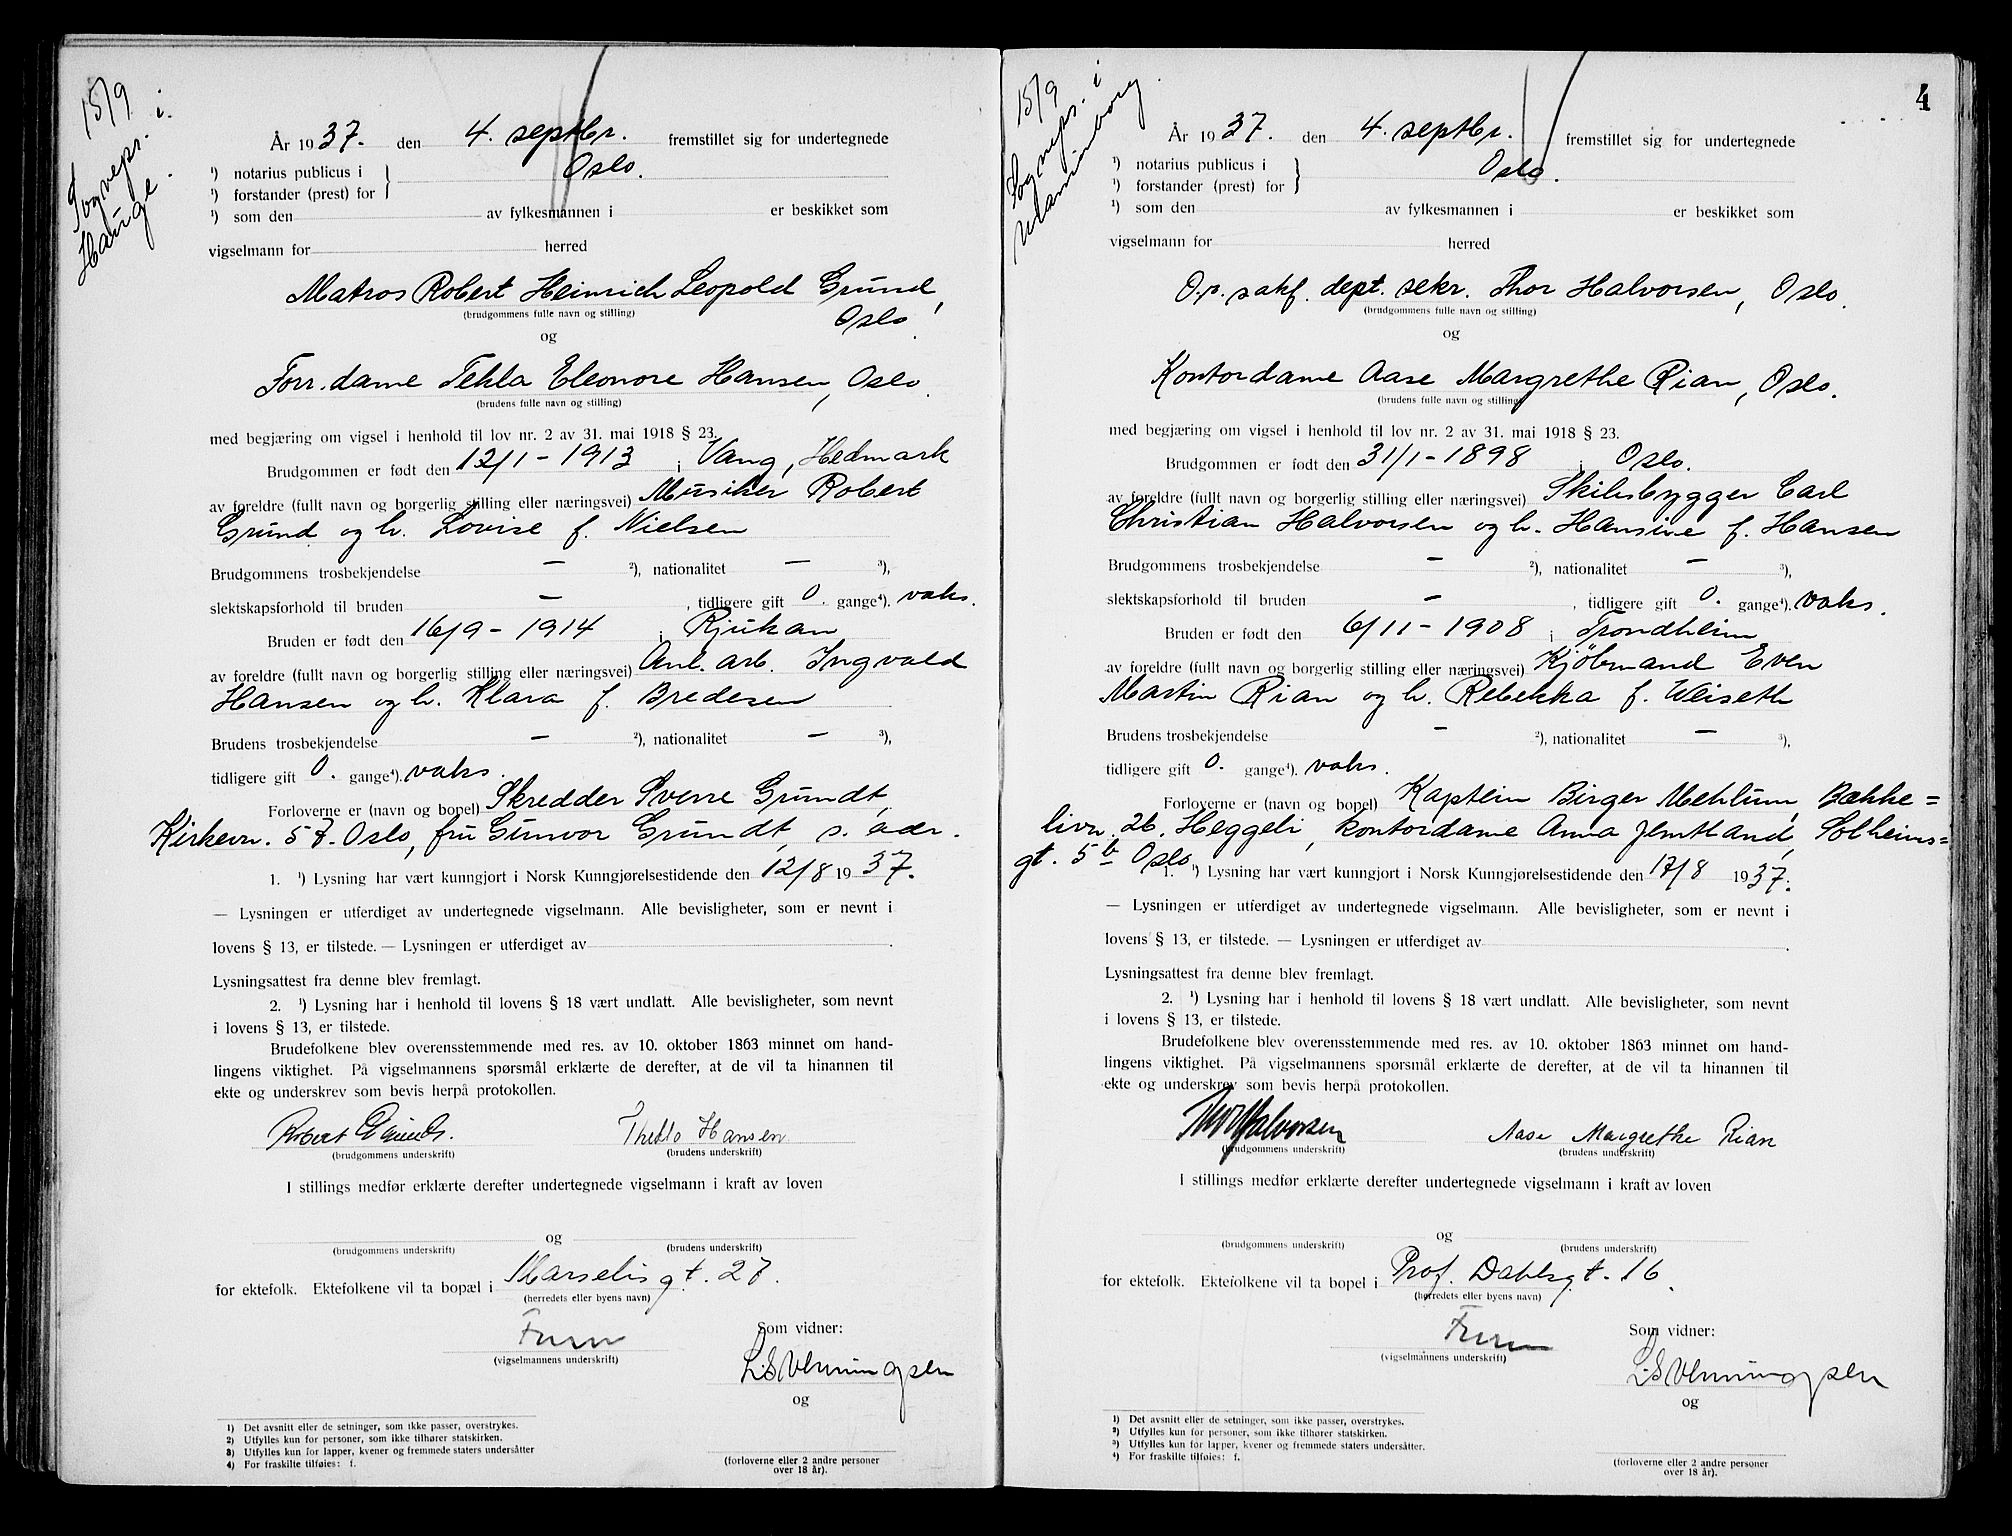 15/9
Sogneps. i
Hauge.
År 1937. den 4. septbr. fremstillet sig for undertegnede
¹) notarius publicus i
¹) forstander (prest) for } Oslo.
¹) som den av fylkesmannen i er beskikket som
vigselmann for herred
Matros Robert Heinrich Leopold Grund,
(brudgommens fulle navn og stilling)
Oslo.
og
Forr.dame Tekla Eleonore Hansen, Oslo.
(brudens fulle navn og stilling)
med begjæring om vigsel i henhold til lov nr. 2 av 31. mai 1918 § 23.
Brudgommen er født den 12/1 - 1913 i Vang, Hedmark
av foreldre (fullt navn og borgerlig stilling eller næringsvei) Musiker Robert
Grund og h. Lovise f. Nielsen
Brudgommens trosbekjendelse — ²), nationalitet — ³),
slektskapsforhold til bruden — , tidligere gift 0. gange⁴). vaks.
Bruden er født den 16/9 - 1914 i Rjukan
av foreldre (fullt navn og borgerlig stilling eller næringsvei) Anl. arb. Ingvald
Hansen og h. Klara f. Bredesen
Brudens trosbekjendelse — ²), nationalitet — ³),
tidligere gift 0. gange⁴). vaks.
Forloverne er (navn og bopel) Skredder Sverre Grundt,
Kirkevn. 57. Oslo, fru Gunvor Grundt, s. adr.
1. ¹) Lysning har vært kunngjort i Norsk Kunngjørelsestidende den 12/8 1937.
— Lysningen er utferdiget av undertegnede vigselmann. Alle bevisligheter, som er nevnt i
lovens § 13, er tilstede. — Lysningen er utferdiget av .
Lysningsattest fra denne blev fremlagt.
2. ¹) Lysning har i henhold til lovens § 18 vært undlatt. Alle bevisligheter, som nevnt
i lovens § 13, er tilstede.
Brudefolkene blev overensstemmende med res. av 10. oktober 1863 minnet om hand-
lingens viktighet. På vigselmannens spørsmål erklærte de derefter, at de vil ta hinannen til
ekte og underskrev som bevis herpå protokollen.
Robert Grund. Thekla Hansen
(brudgommens underskrift) (brudens underskrift)
I stillings medfør erklærte derefter undertegnede vigselmann i kraft av loven
og
(brudgommens underskrift) (brudens underskrift)
for ektefolk. Ektefolkene vil ta bopæl i Marselisgt. 27.
(herredets eller byens navn)
Som vidner:
(vigselmannens underskrift)
og
1) Det avsnitt eller de setninger, som ikke passer, overstrykes.
2) Utfylles kun for personer, som ikke tilhører statskirken.
3) Utfylles kun for lapper, kvener og fremmede staters undersåtter
4) For fraskilte tilføies: f.
(forloverne eller 2 andre personer
over 18 år).
4
15/9
Sogneps. i
Uranienborg.
År 1937. den 4. septbr. fremstillet sig for undertegnede
¹) notarius publicus i
¹) forstander (prest) for } Oslo.
¹) som den av fylkesmannen i er beskikket som
vigselmann for herred
O.r.sakf. dept. sekr. Thor Halvorsen, Oslo.
(brudgommens fulle navn og stilling)
og
Kontordame Aase Margrethe Rian, Oslo.
(brudens fulle navn og stilling)
med begjæring om vigsel i henhold til lov nr. 2 av 31. mai 1918 § 23.
Brudgommen er født den 31/1 - 1898 i Oslo.
av foreldre (fullt navn og borgerlig stilling eller næringsvei) Skibsbygger Carl
Christian Halvorsen og h. Hansine f. Hansen
Brudgommens trosbekjendelse — ²), nationalitet — ³),
slektskapsforhold til bruden — , tidligere gift 0. gange⁴). vaks.
Bruden er født den 6/11 - 1908 i Trondheim
av foreldre (fullt navn og borgerlig stilling eller næringsvei) Kjøbmand Even
Martin Rian og h. Rebekka f. Weiseth
Brudens trosbekjendelse — ²), nationalitet — ³),
tidligere gift 0. gange⁴). vaks.
Forloverne er (navn og bopel) Kaptein Birger Mehlum, Bække=
livn. 26. Heggeli, kontordame Anna Jemtland, Solheims=
gt. 5b Oslo
1. ¹) Lysning har vært kunngjort i Norsk Kunngjørelsestidende den 17/8 1937.
— Lysningen er utferdiget av undertegnede vigselmann. Alle bevisligheter, som er nevnt i
lovens § 13, er tilstede. — Lysningen er utferdiget av .
Lysningsattest fra denne blev fremlagt.
2. ¹) Lysning har i henhold til lovens § 18 vært undlatt. Alle bevisligheter, som nevnt
i lovens § 13, er tilstede.
Brudefolkene blev overensstemmende med res. av 10. oktober 1863 minnet om hand-
lingens viktighet. På vigselmannens spørsmål erklærte de derefter, at de vil ta hinannen til
ekte og underskrev som bevis herpå protokollen.
Thor Halvorsen Aase Margrethe Rian
(brudgommens underskrift) (brudens underskrift)
I stillings medfør erklærte derefter undertegnede vigselmann i kraft av loven
og
(brudgommens underskrift) (brudens underskrift)
for ektefolk. Ektefolkene vil ta bopel i Prof. Dahlsgt. 16.
(herredets eller byens navn)
Som vidner:
(vigselmannens underskrift)
og
¹) Det avsnitt eller de setninger, som ikke passer, overstrykes.
²) Utfylles kun for personer, som ikke tilhører statskirken.
³) Utfylles kun for lapper, kvener og fremmede staters undersåtter.
⁴) For fraskilte tilføies: f.
(forloverne eller 2 andre personer
over 18 år).